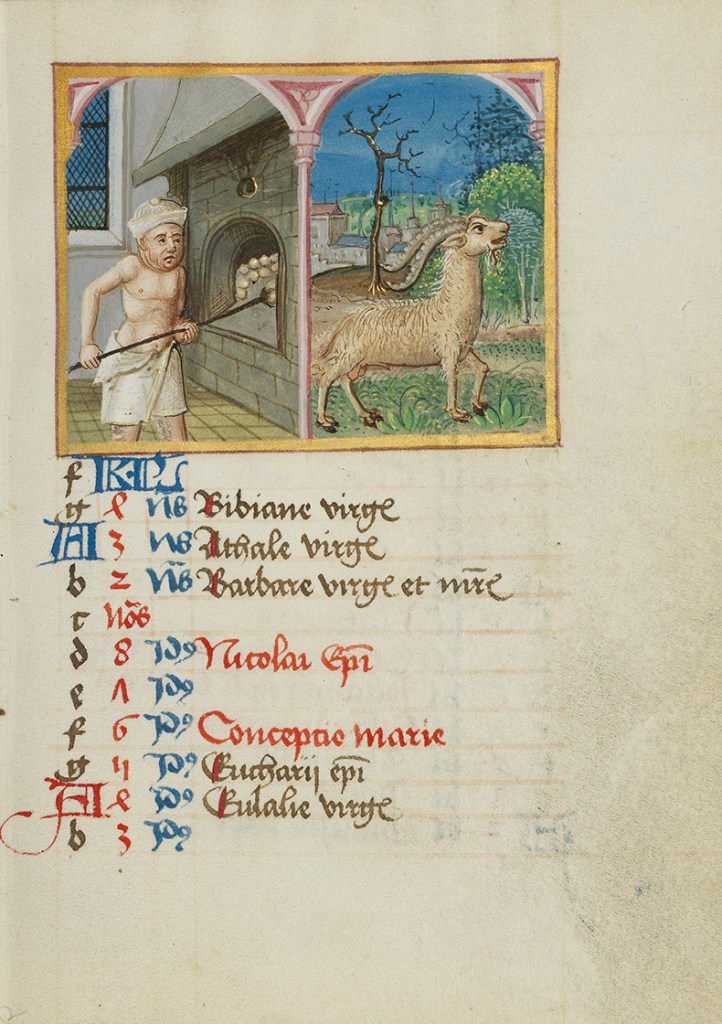 f KL
g ꝭ Nōs Bibiane virgꝭ
A 3 Nōs Athale virgꝭ
b 2 Nōs Barbare virgꝭ et mrē
c Nōs
d 8 Idꝰ Nicolai Epī
e Λ Idꝰ
f 6 Idꝰ Conceptio marie
g 4 Idꝰ Eucharij epī
A Idꝰ Eulalie virgꝭ
b 3 Idꝰ